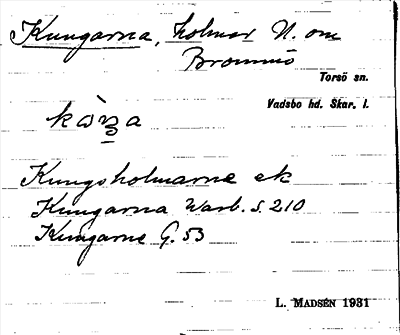 Kungarna, holmar N. om
Brommö
Torsö sn.
Vadsbo hd. Skar. l.
Kungsholmarne ek
Kungarna Warb. s. 210
Kungarne G. 53
L. MADSÉN 1931